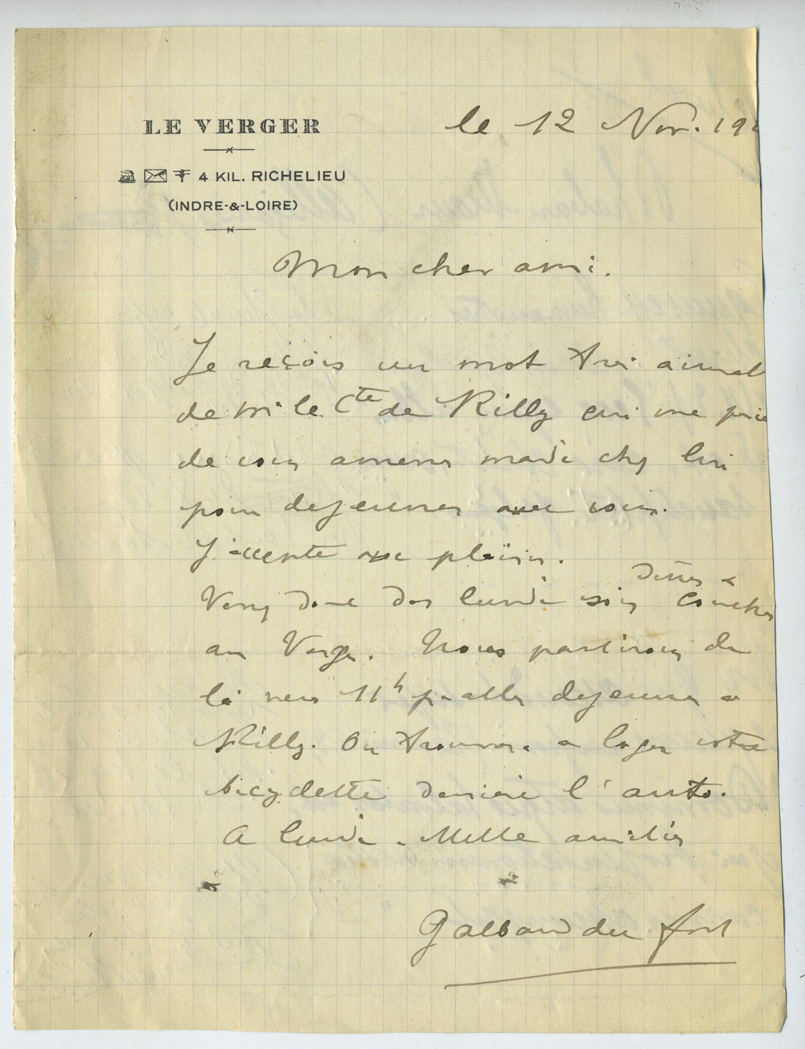 LE VERGER
le 12 Nov. 19
4 KIL. RICHELIEU
(INDRE-&-LOIRE)
Mon cher ami.
Je reçois un mot très aimabl
de Mr le Cte de Rilly qui me prie
de vous amener mardi chez lui
pour dejeuner avec vous.
J'accepte avec plaisir.
Venez donc des lundi soir diner &
coucher
au Verger. Nous partirons de
là vers 11h pr aller dejeuner a
Rilly. On trouvera a loger votre
bicyclette derrière l'auto.
A lundi. Mille amitiés
Galbaud du Fort